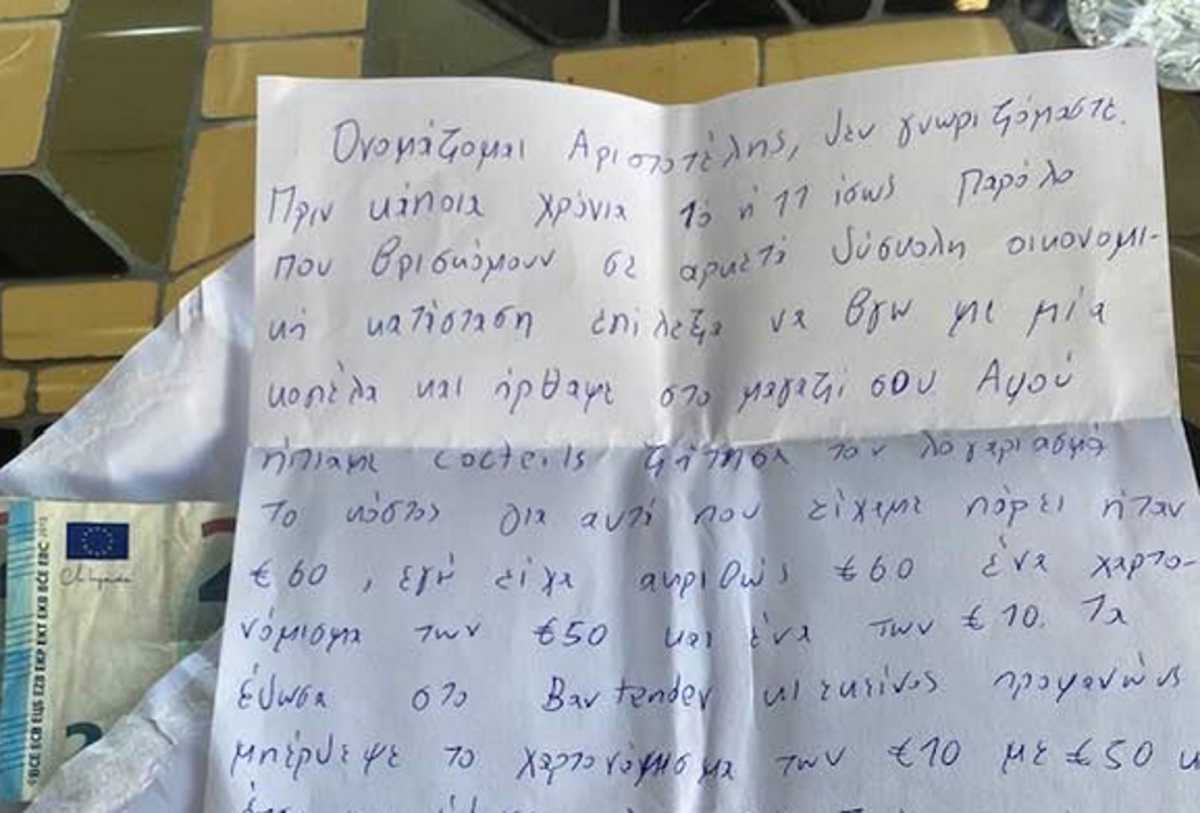 Ονομάζομαι Αριστοτέλης, δεν γνωριζόμαστε.
Πριν κάποια χρόνια 10 ή 11 ίσως Παρόλο
που βρισκόμουν σε αρκετά δύσκολη οικονομι-
κή κατάσταση επίλεξα να βγω με μία
κοπέλα και ήρθαμε στο μαγαζί σου. Αφού
ήπιαμε cocteils ζήτησα τον λογαριασμό
το κόστος για αυτά που είχαμε πάρει ήταν
€60, εγώ είχα ακριβώς €60 ένα χαρτο-
νόμισμα των €50 και ένα των €10. Τα
έδωσα στο Bartender κι εκείνος προφανώς
μπέρδεψε το χαρτονόμισμα των €10 με €50 κ
BCE ECB ЕЦБ EZB EKP EKT EKB BĊE EBC 2012